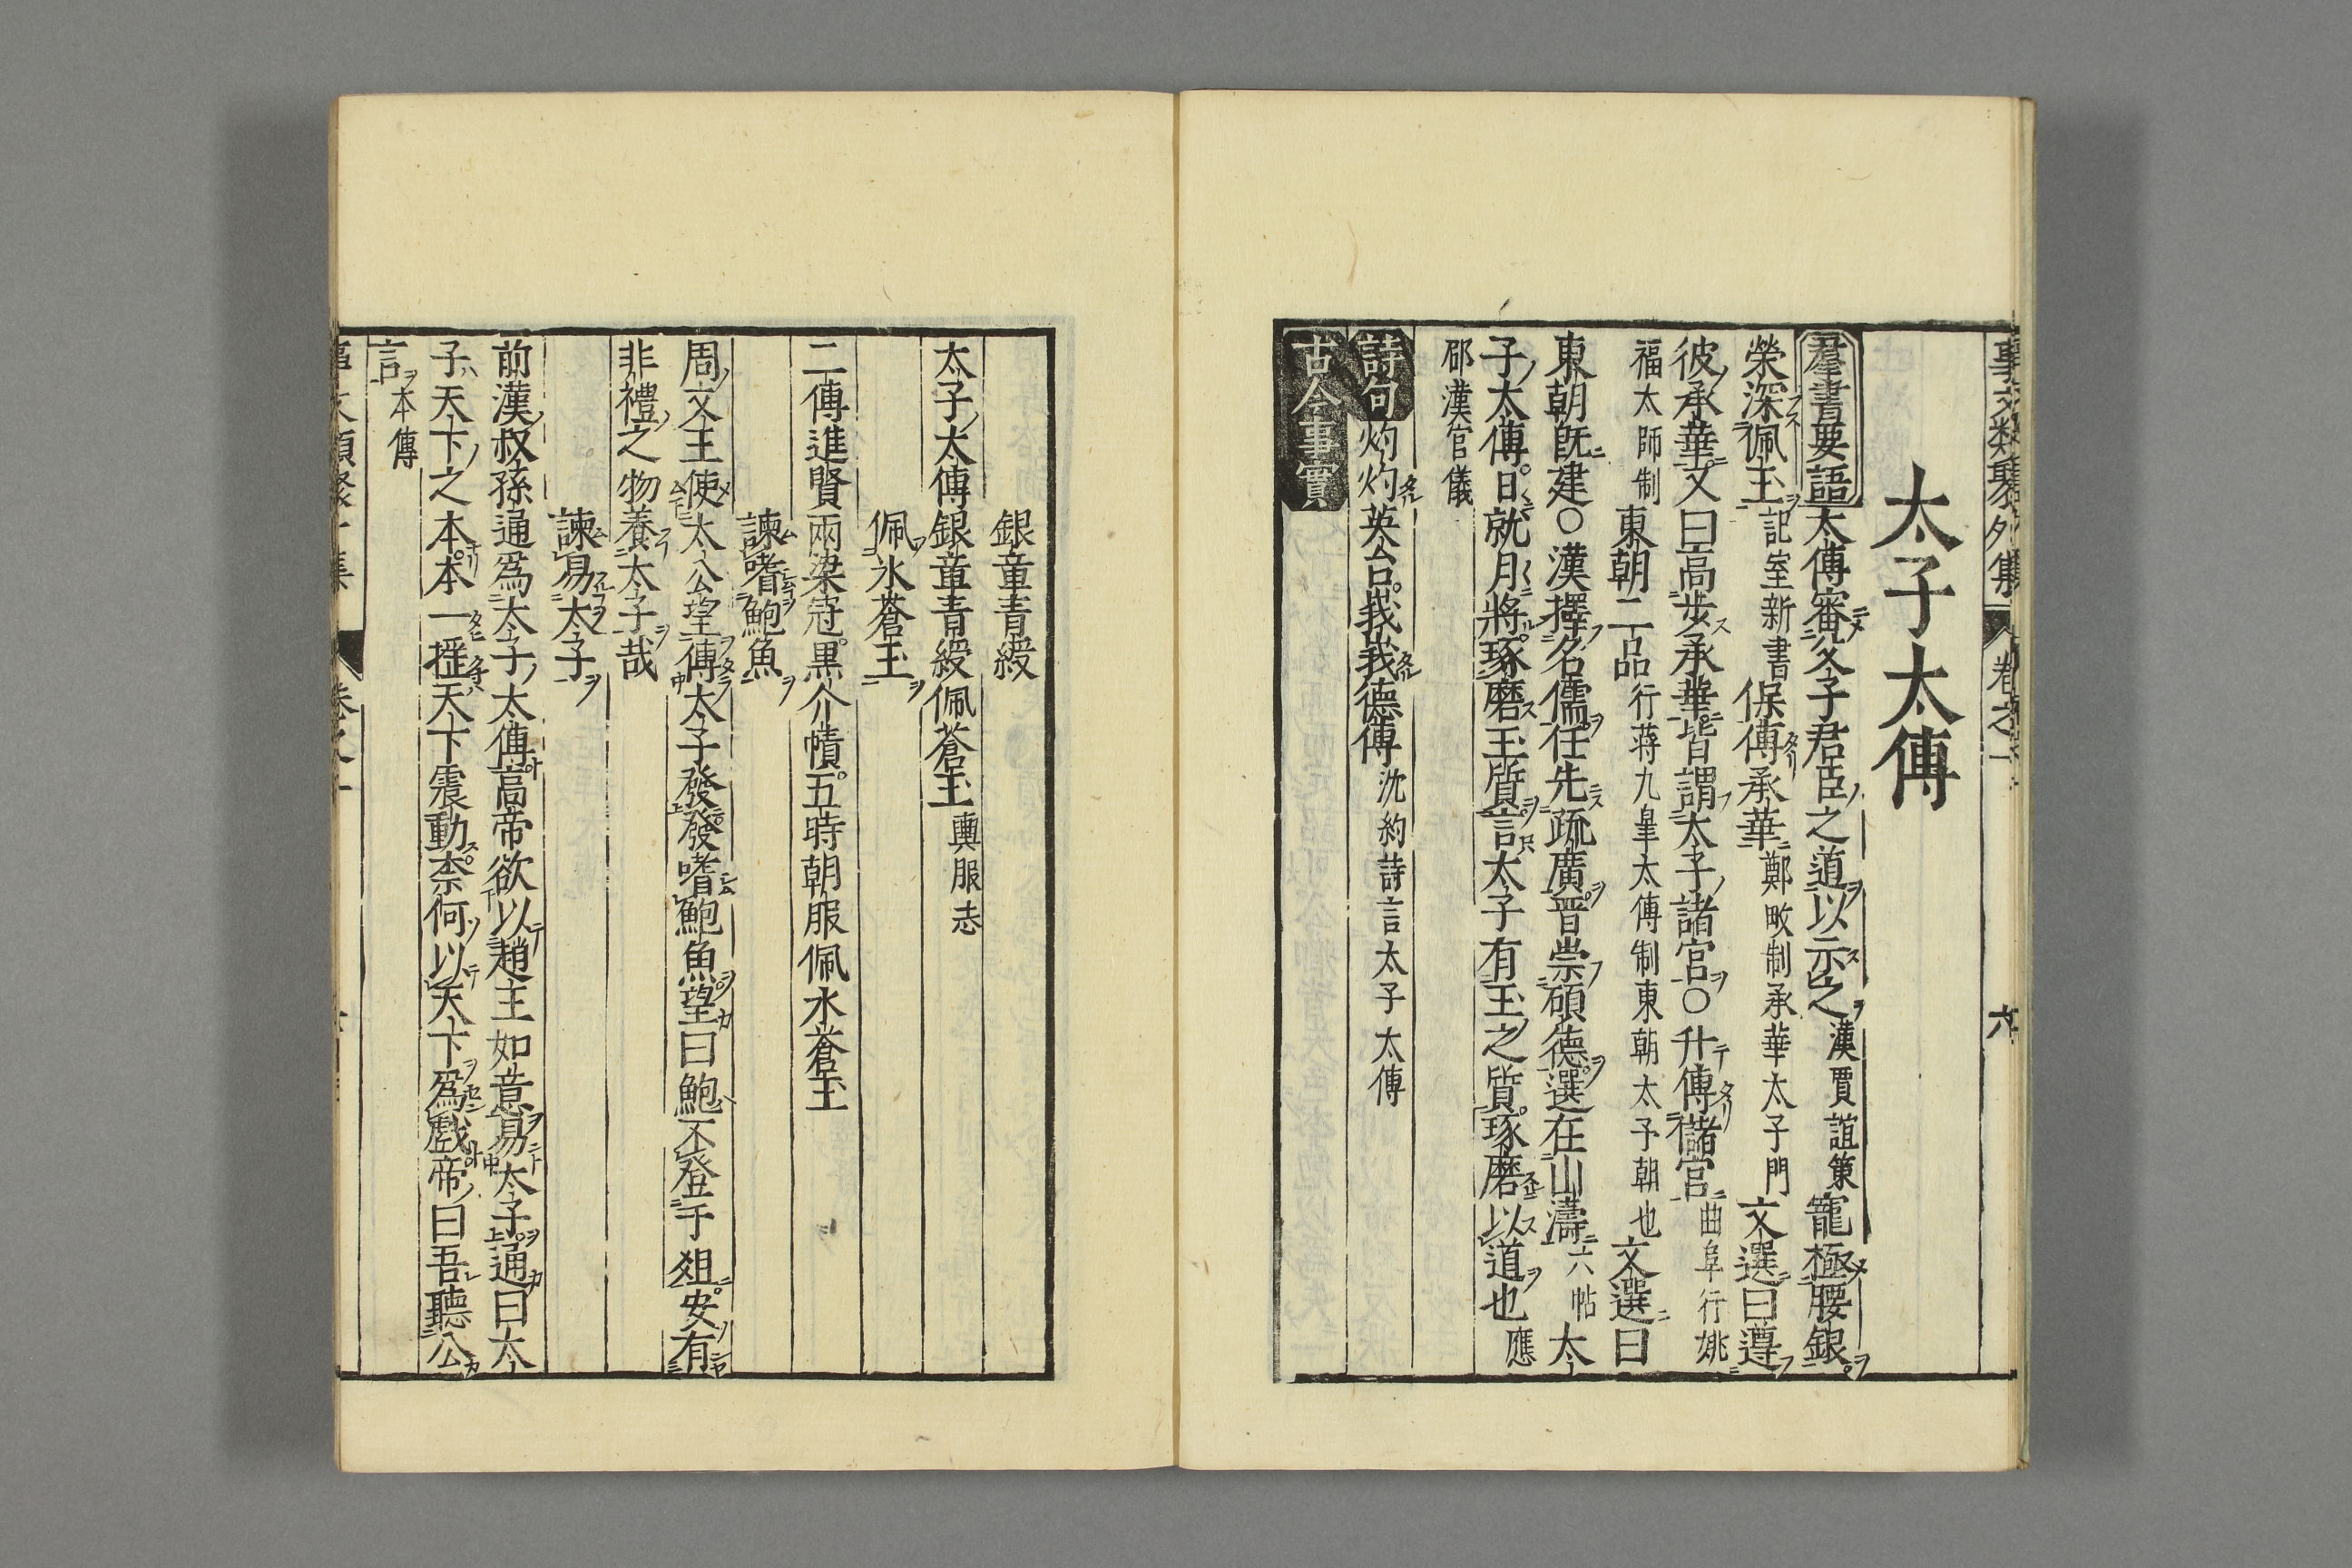 事文類聚外集 卷之一 六
太子太傅
羣書要語 太傅審父子君臣之道以示之漢賈誼策寵極腰銀
榮深佩玉記室新書保傅承華鄭畋制承華太子門文選曰遵
彼承華又曰高步承華皆謂太子諸官〇升傅儲宫曲阜行姚
福太師制東朝二品行蒋九皇太傅制東朝太子朝也文選曰
東朝既建〇漢擇名儒任先疏廣晋崇碩德選在山濤六帖太
子太傅日就月將琢磨玉質言太子有玉之質琢磨以道也應
邵漢官儀
詩句 灼灼英台峩峩德傅沈約詩言太子太傅
古今事實
銀章青綬
太子太傅銀章青綬佩蒼玉輿服志
佩水蒼玉
二傅進賢兩梁冠黒介幘五時朝服佩水蒼玉
諫嗜鮑魚
周文王使太公望傅太子發發嗜鮑魚望曰鮑不登于俎安有
非禮之物養太子哉
諫易太子
前漢叔孫通爲太子太傅高帝欲以趙王如意易太子通曰太
子天下之本本一摇天下震動柰何以天下爲戲帝曰吾聽公
言本傳